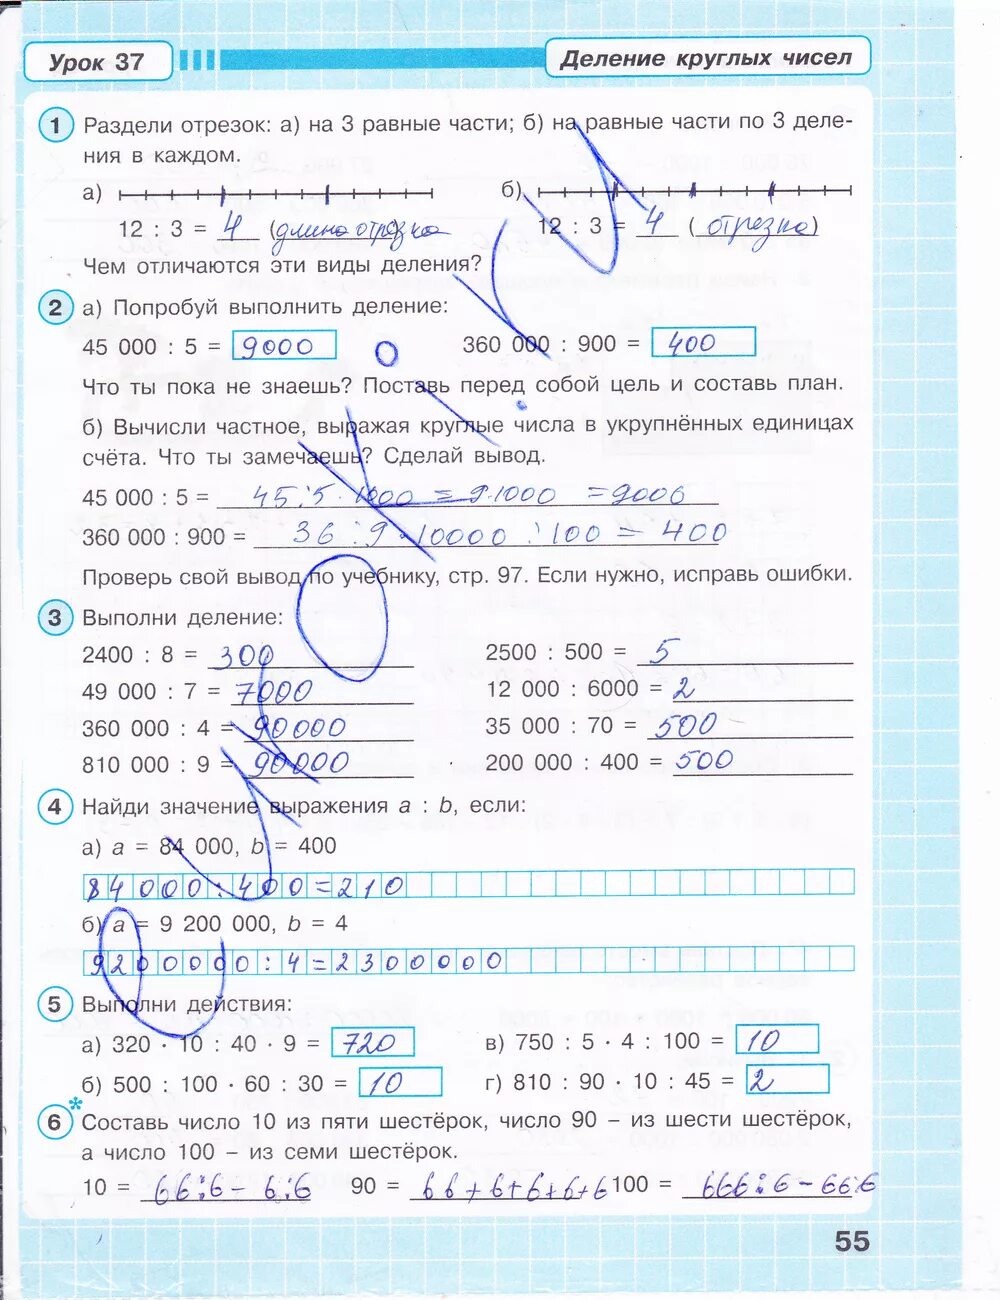 Урок 37
Деление круглых чисел
1 Раздели отрезок: а) на 3 равные части; б) на равные части по 3 деле-
ния в каждом.
а) б)
12 : 3 = 4 (длина отрезка) 12 : 3 = 4 (отрезка)
Чем отличаются эти виды деления?
2 а) Попробуй выполнить деление:
45 000 : 5 = 9000 360 000 : 900 = 400
Что ты пока не знаешь? Поставь перед собой цель и составь план.
б) Вычисли частное, выражая круглые числа в укрупнённых единицах
счёта. Что ты замечаешь? Сделай вывод.
45 000 : 5 = 45:5·1000 = 9·1000 = 9000
360 000 : 900 = 36:9·10000:100=400
Проверь свой вывод по учебнику, стр. 97. Если нужно, исправь ошибки.
3 Выполни деление:
2400 : 8 = 300 2500 : 500 = 5
49 000 : 7 = 7000 12 000 : 6000 = 2
360 000 : 4 = 90000 35 000 : 70 = 500
810 000 : 9 = 90000 200 000 : 400 = 500
4 Найди значение выражения a : b, если:
а) a = 84 000, b = 400
84000:400=210
б) a = 9 200 000, b = 4
9200000:4=2300000
5 Выполни действия:
а) 320 · 10 : 40 · 9 = 720 в) 750 : 5 · 4 : 100 = 10
б) 500 : 100 · 60 : 30 = 10 г) 810 : 90 · 10 : 45 = 2
6* Составь число 10 из пяти шестёрок, число 90 – из шести шестёрок,
а число 100 – из семи шестёрок.
10 = 66:6-6:6 90 = 66+6+6+6+6 100 = 666:6-66:6
55